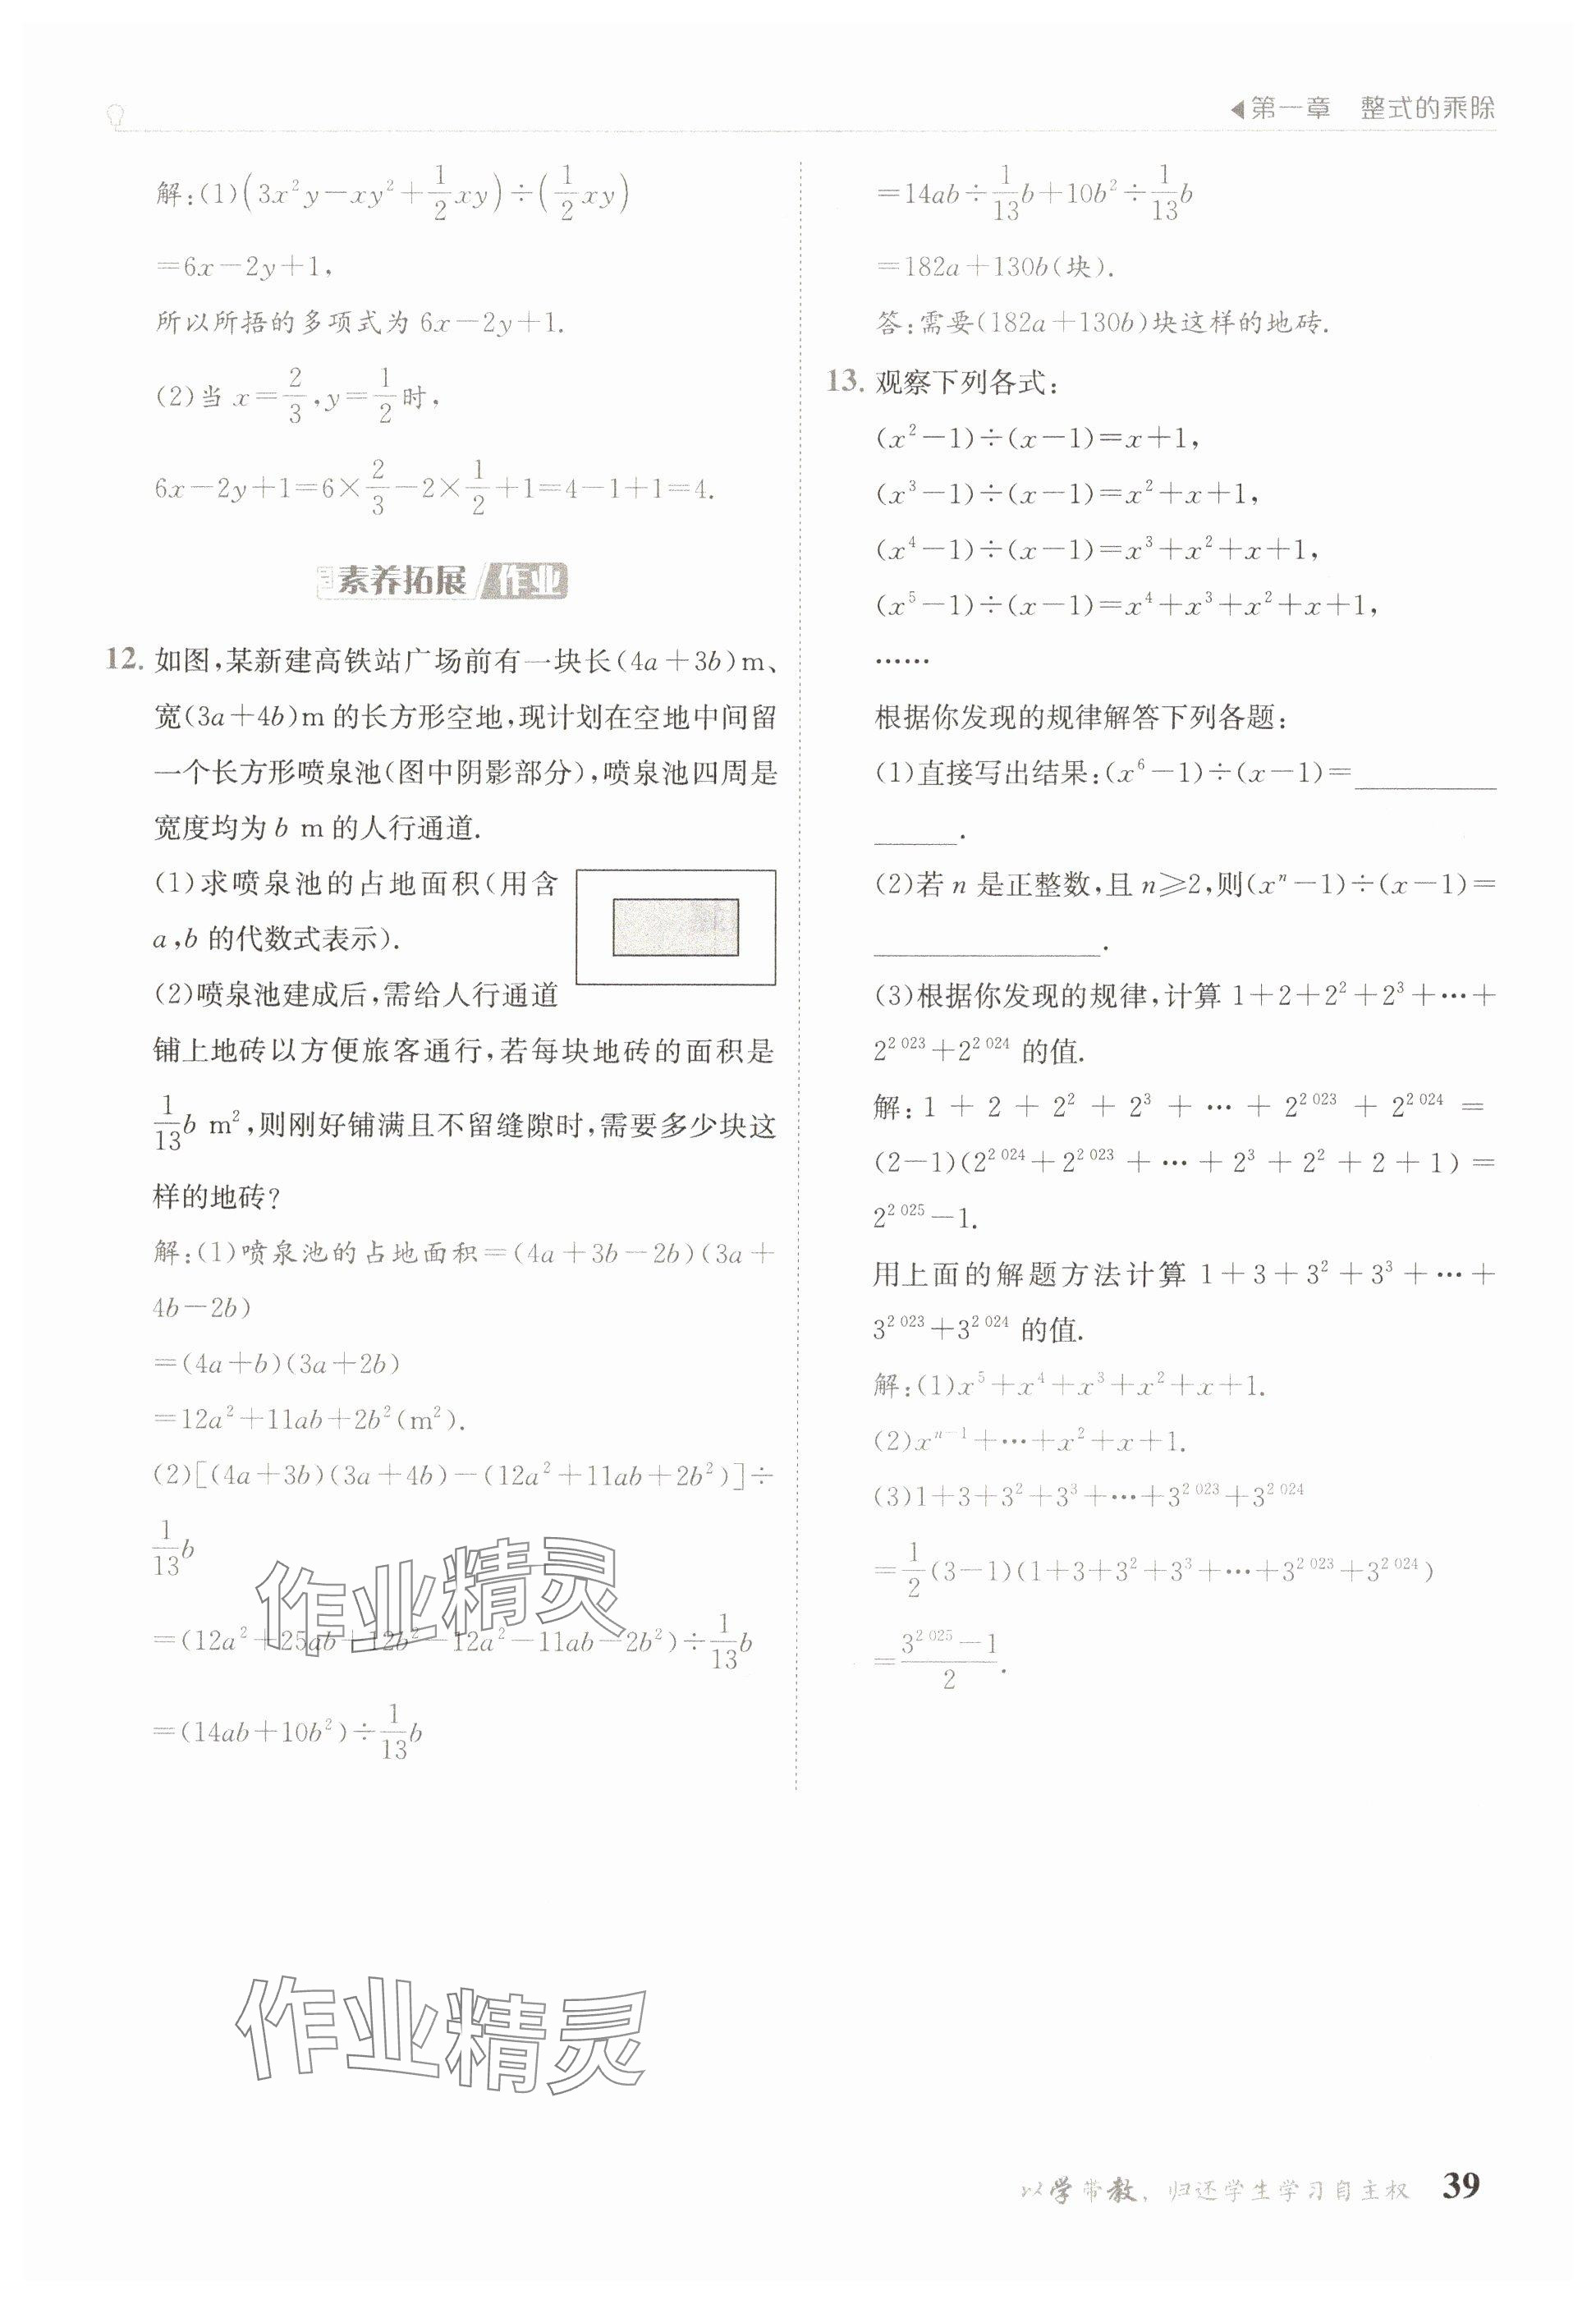 ◀第一章 整式的乘除
解:(1)(3x²y−xy²+1/2xy)÷(1/2xy)
=6x−2y+1,
所以所捂的多项式为 6x−2y+1.
(2)当 x=2/3,y=1/2时,
6x−2y+1=6×2/3−2×1/2+1=4−1+1=4.
素养拓展 作业
12. 如图,某新建高铁站广场前有一块长(4a+3b)m、
宽(3a+4b)m 的长方形空地,现计划在空地中间留
一个长方形喷泉池(图中阴影部分),喷泉池四周是
宽度均为 b m 的人行通道.
(1)求喷泉池的占地面积(用含
a,b 的代数式表示).
(2)喷泉池建成后,需给人行通道
铺上地砖以方便旅客通行,若每块地砖的面积是
1/13b m²,则刚好铺满且不留缝隙时,需要多少块这
样的地砖?
解:(1)喷泉池的占地面积=(4a+3b−2b)(3a+
4b−2b)
=(4a+b)(3a+2b)
=12a²+11ab+2b²(m²).
(2)[(4a+3b)(3a+4b)−(12a²+11ab+2b²)]÷
1/13b
=(12a²+25ab+12b²−12a²−11ab−2b²)÷1/13b
=(14ab+10b²)÷1/13b
=14ab÷1/13b+10b²÷1/13b
=182a+130b(块).
答:需要(182a+130b)块这样的地砖.
13. 观察下列各式:
(x²−1)÷(x−1)=x+1,
(x³−1)÷(x−1)=x²+x+1,
(x⁴−1)÷(x−1)=x³+x²+x+1,
(x⁵−1)÷(x−1)=x⁴+x³+x²+x+1,
……
根据你发现的规律解答下列各题:
(1)直接写出结果:(x⁶−1)÷(x−1)=__________
______.
(2)若 n 是正整数,且 n⩾2,则(xⁿ−1)÷(x−1)=
________________.
(3)根据你发现的规律,计算 1+2+2²+2³+…+
2² ⁰²³+2² ⁰²⁴ 的值.
解:1+2+2²+2³+…+2² ⁰²³+2² ⁰²⁴=
(2−1)(2² ⁰²⁴+2² ⁰²³+…+2³+2²+2+1)=
2² ⁰²⁵−1.
用上面的解题方法计算 1+3+3²+3³+…+
3² ⁰²³+3² ⁰²⁴ 的值.
解:(1)x⁵+x⁴+x³+x²+x+1.
(2)xⁿ⁻¹+…+x²+x+1.
(3)1+3+3²+3³+…+3² ⁰²³+3² ⁰²⁴
=1/2(3−1)(1+3+3²+3³+…+3² ⁰²³+3² ⁰²⁴)
=(3² ⁰²⁵−1)/2.
作业精灵
作业精灵
以学带教,归还学生学习自主权 39